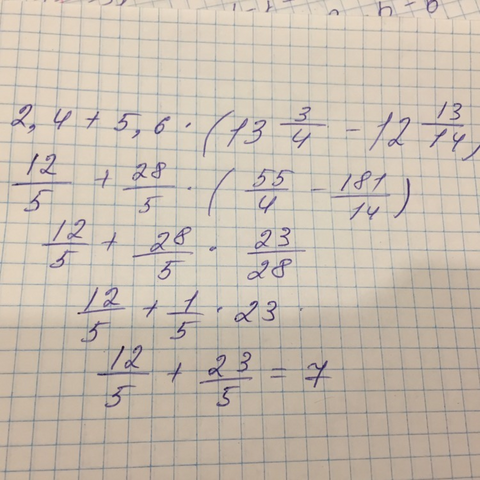 2,4 + 5,6 · (13 3/4 - 12 13/14)
12/5 + 28/5 · (55/4 - 181/14)
12/5 + 28/5 · 23/28
12/5 + 1/5 · 23
12/5 + 23/5 = 7